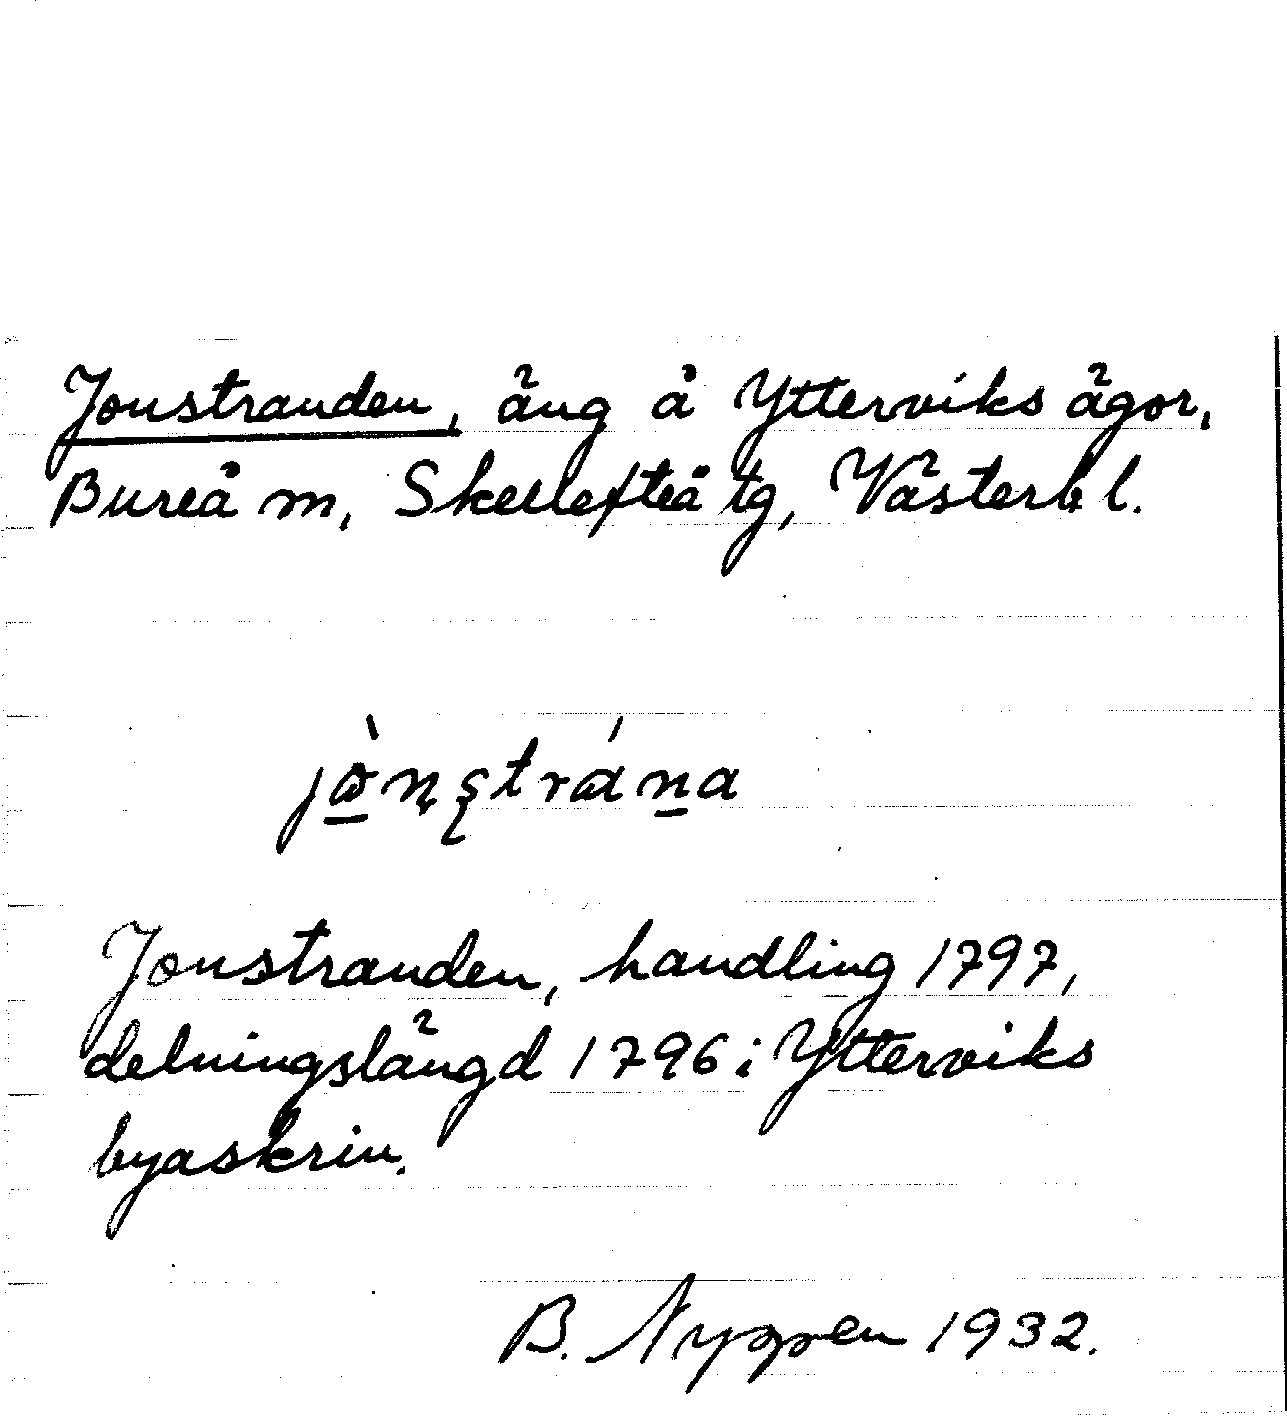 Jonstranden, äng å Ytterviks ägor,
Bureå m, Skellefteå tg, Västerb l.
Jonstranden, handling 1797,
delningslängd 1796 i Ytterviks
byaskrin.
B. Nygren 1932.